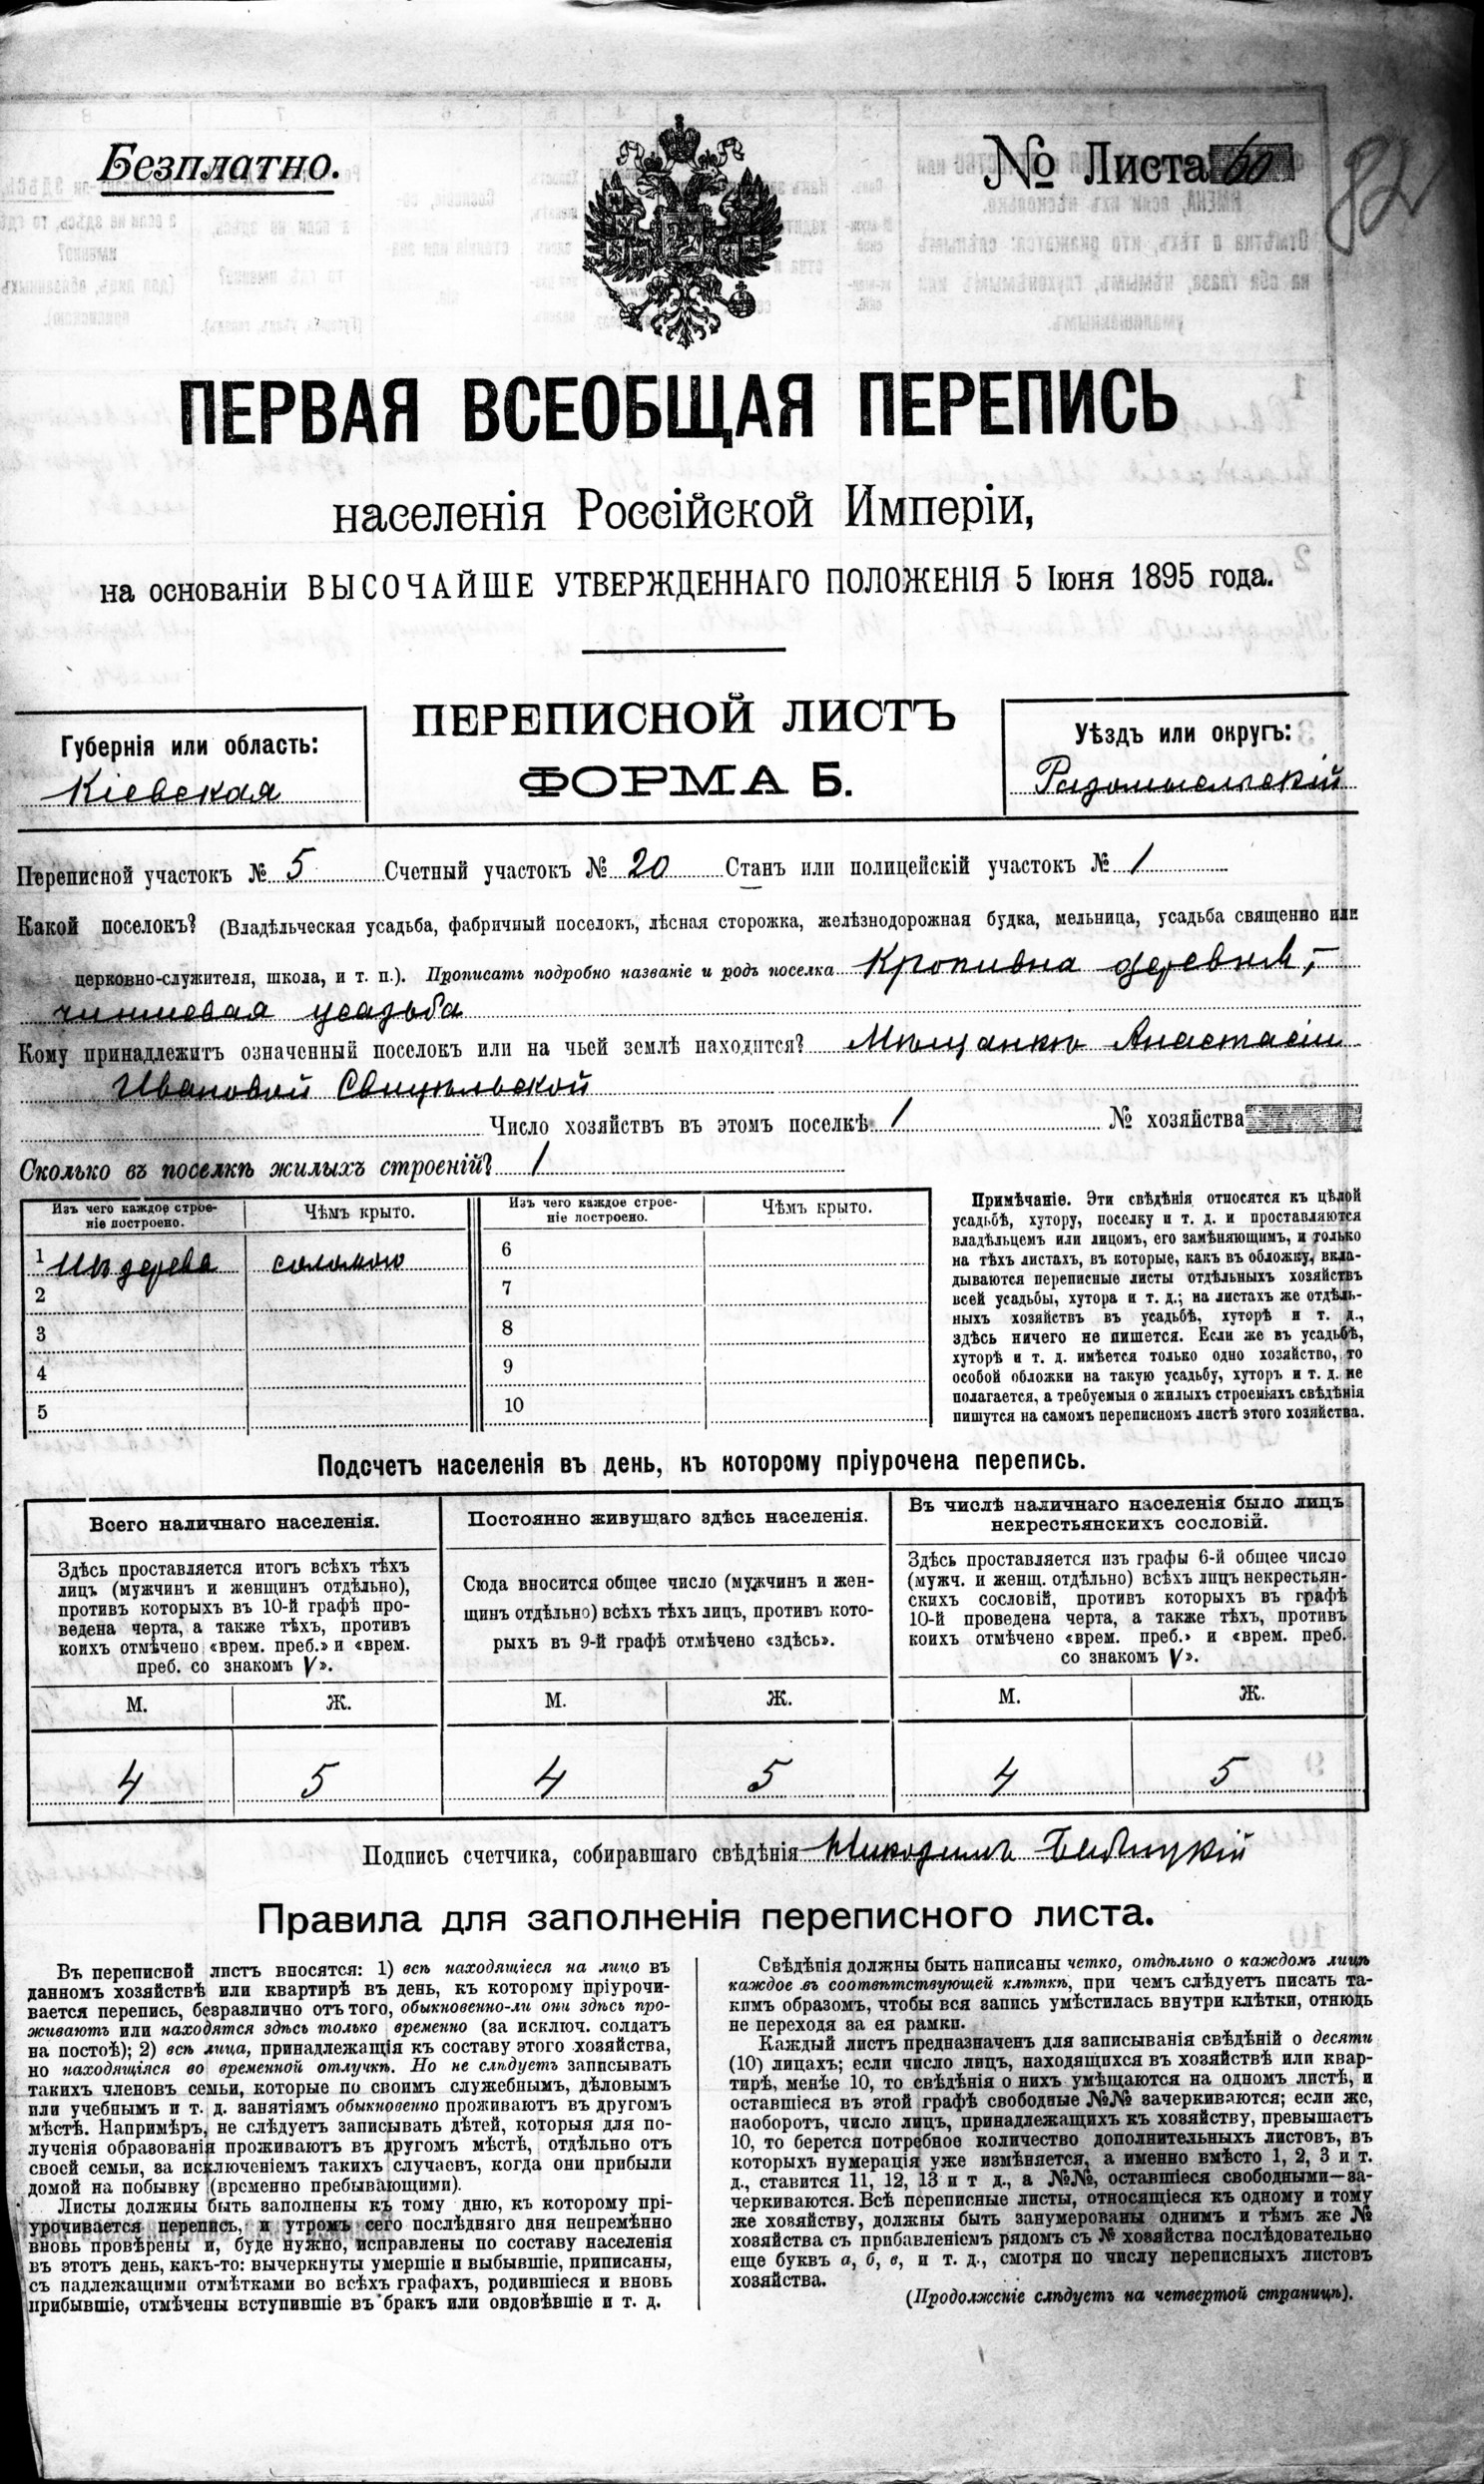 Безплатно.
№ Листа 60
82
ПЕРВАЯ ВСЕОБЩАЯ ПЕРЕПИСЬ
населенія Россійской Имперіи,
на основаніи ВЫСОЧАЙШЕ УТВЕРЖДЕННАГО ПОЛОЖЕНІЯ 5 Іюня 1895 года.
Губернія или область:
Кіевская
ПЕРЕПИСНОЙ ЛИСТЪ
ФОРМА Б.
Уѣздъ или округъ:
Радомысльскій
Переписной участокъ № 5 Счетный участокъ № 20 Станъ или полицейскій участокъ № 1
Какой поселокъ? (Владѣльческая усадьба, фабричный поселокъ, лѣсная сторожка, желѣзнодорожная будка, мельница, усадьба священно или
церковно-служителя, школа, и т. п.). Прописать подробно названіе и родъ поселка Кропивна деревня,
чиншевая усадьба
Кому принадлежитъ означенный поселокъ или на чьей землѣ находится? Мѣщанкѣ Анастасіи
Ивановой Свицельской
Число хозяйствъ въ этомъ поселкѣ 1 № хозяйства
Сколько въ поселкѣ жилыхъ строеній? 1
Изъ чего каждое строе-
ніе построено.
Чѣмъ крыто.
Изъ чего каждое строе-
ніе построено.
Чѣмъ крыто.
1 Изъ дерева соломою
2
3
4
5
6
7
8
9
10
Примѣчаніе. Эти свѣдѣнія относятся къ цѣлой
усадьбѣ, хутору, поселку и т. д. и проставляются
владѣльцемъ или лицомъ, его замѣняющимъ, и только
на тѣхъ листахъ, въ которые, какъ въ обложку, вкла-
дываются переписные листы отдѣльныхъ хозяйствъ
всей усадьбы, хутора и т. д.; на листахъ же отдѣль-
ныхъ хозяйствъ въ усадьбѣ, хуторѣ и т. д.,
здѣсь ничего не пишется. Если же въ усадьбѣ,
хуторѣ и т. д. имѣется только одно хозяйство, то
особой обложки на такую усадьбу, хуторъ и т. д. не
полагается, а требуемыя о жилыхъ строеніяхъ свѣдѣнія
пишутся на самомъ переписномъ листѣ этого хозяйства.
Подсчетъ населенія въ день, къ которому пріурочена перепись.
Всего наличнаго населенія.
Здѣсь проставляется итогъ всѣхъ тѣхъ
лицъ (мужчинъ и женщинъ отдѣльно),
противъ которыхъ въ 10-й графѣ про-
ведена черта, а также тѣхъ, противъ
коихъ отмѣчено «врем. преб.» и «врем.
преб. со знакомъ V».
М. Ж.
4 5
Постоянно живущаго здѣсь населенія.
Сюда вносится общее число (мужчинъ и жен-
щинъ отдѣльно) всѣхъ тѣхъ лицъ, противъ кото-
рыхъ въ 9-й графѣ отмѣчено «здѣсь».
М. Ж.
4 5
Въ числѣ наличнаго населенія было лицъ
некрестьянскихъ сословій.
Здѣсь проставляется изъ графы 6-й общее число
(мужч. и женщ. отдѣльно) всѣхъ лицъ некрестьян-
скихъ сословій, противъ которыхъ въ графѣ
10-й проведена черта, а также тѣхъ, противъ
коихъ отмѣчено «врем. преб.» и «врем. преб.
со знакомъ V».
М. Ж.
4 5
Подпись счетчика, собиравшаго свѣдѣнія Никодимъ
Правила для заполненія переписного листа.
Въ переписной листъ вносятся: 1) всѣ находящіеся на лицо въ
данномъ хозяйствѣ или квартирѣ въ день, къ которому пріурочи-
вается перепись, безразлично отъ того, обыкновенно-ли они здѣсь про-
живаютъ или находятся здѣсь только временно (за исключ. солдатъ
на постоѣ); 2) всѣ лица, принадлежащія къ составу этого хозяйства,
но находящіяся во временной отлучкѣ. Но не слѣдуетъ записывать
такихъ членовъ семьи, которые по своимъ служебнымъ, дѣловымъ
или учебнымъ и т. д. занятіямъ обыкновенно проживаютъ въ другомъ
мѣстѣ. Напримѣръ, не слѣдуетъ записывать дѣтей, которыя для по-
лученія образованія проживаютъ въ другомъ мѣстѣ, отдѣльно отъ
своей семьи, за исключеніемъ такихъ случаевъ, когда они прибыли
домой на побывку (временно пребывающими).
Листы должны быть заполнены къ тому дню, къ которому прі-
урочивается перепись, и утромъ сего послѣдняго дня непремѣнно
вновь провѣрены и, буде нужно, исправлены по составу населенія
въ этотъ день, какъ-то: вычеркнуты умершіе и выбывшіе, приписаны,
съ надлежащими отмѣтками во всѣхъ графахъ, родившіеся и вновь
прибывшіе, отмѣчены вступившіе въ бракъ или овдовѣвшіе и т. д.
Свѣдѣнія должны быть написаны четко, отдѣльно о каждомъ лицѣ
каждое въ соотвѣтствующей клѣткѣ, при чемъ слѣдуетъ писать та-
кимъ образомъ, чтобы вся запись умѣстилась внутри клѣтки, отнюдь
не переходя за ея рамки.
Каждый листъ предназначенъ для записыванія свѣдѣній о десяти
(10) лицахъ; если число лицъ, находящихся въ хозяйствѣ или квар-
тирѣ, менѣе 10, то свѣдѣнія о нихъ умѣщаются на одномъ листѣ, и
оставшіеся въ этой графѣ свободные №№ зачеркиваются; если же,
наоборотъ, число лицъ, принадлежащихъ къ хозяйству, превышаетъ
10, то берется потребное количество дополнительныхъ листовъ, въ
которыхъ нумерація уже измѣняется, а именно вмѣсто 1, 2, 3 и т.
д., ставится 11, 12, 13 и т д., а №№, оставшіеся свободными—за-
черкиваются. Всѣ переписные листы, относящіеся къ одному и тому
же хозяйству, должны быть занумерованы однимъ и тѣмъ же №
хозяйства съ прибавленіемъ рядомъ съ № хозяйства послѣдовательно
еще буквъ а, б, в, и т. д., смотря по числу переписныхъ листовъ
хозяйства.
(Продолженіе слѣдуетъ на четвертой страницѣ).